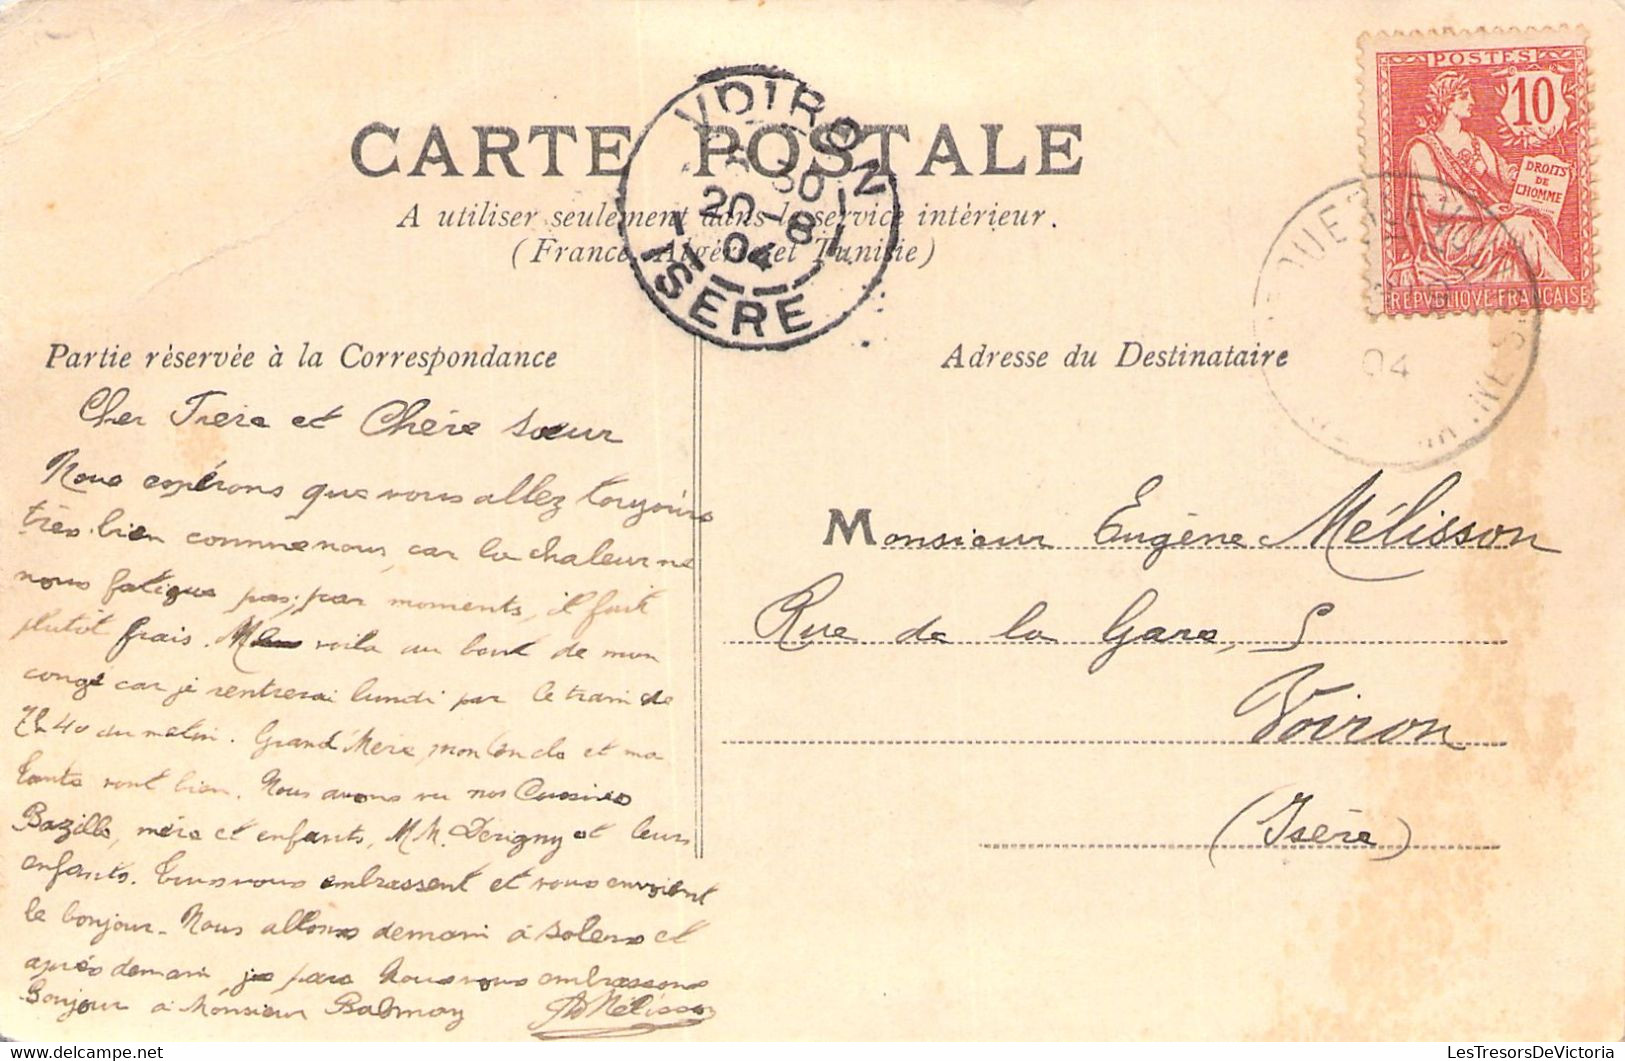 CARTE POSTALE
A utiliser seulement dans le service intérieur.
(France, Algérie et Tunisie)
VOIRON
20-8
04
ISÈRE
POSTES
10
DROITS
DE
L'HOMME
REPVBLIQVE FRANCAISE
04
Partie réservée à la Correspondance
Cher Frère et Chère Sœur
Nous espérons que vous allez toujours
très bien comme nous, car la chaleur ne
nous fatigue pas; par moments, il fait
plutôt frais. Me voila au bout de mon
congé car je rentrerai lundi par le train de
7h 40 du matin. Grand'Mère, mon oncle et ma
tante vont bien. Nous avons vu nos Cousines
Bazille, mère et enfants, M M. Dérigny et leurs
enfants. Tous vous embrassent et vous envoient
le bonjour. Nous allons demain à Solers et
après demain, je pars Nous vous embrassons
Bonjour à Monsieur Balmay Mélisson
Adresse du Destinataire
Monsieur Eugène Mélisson
Rue de la Gare, 5
Voiron
(Isère)
© delcampe.net
LesTresorsDeVictoria